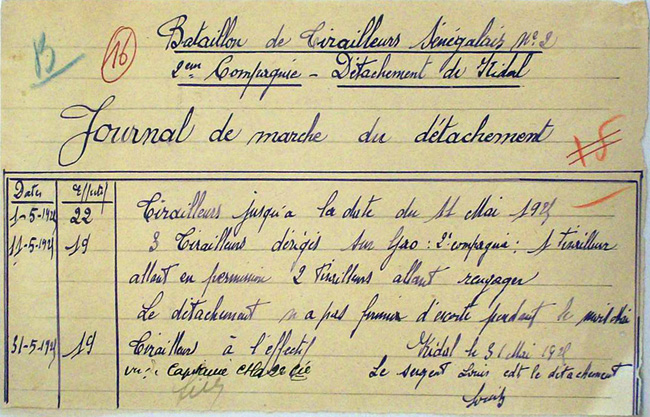 B
16
Bataillon de Tirailleurs Sénégalais N°2
2em Compagnie - Détachement de Kidal
Journal de marche du détachement
15
Dates Effectif
1-5-192 22 Tirailleurs jusqu'a la date du 11 Mai 192
11-5-192 19 3 Tirailleurs dirigés sur Gao : 2e compagnie : 1 tirailleur
allant en permission 2 Tirailleurs allant rengager
Le détachement n a pas fournir d'escorte pendant le
31-5-192 19 Tirailleurs à l'effectif Kidal le 31 Mai 192
vu : Capitaine Le sergent Louis cdt le détachement
Louis